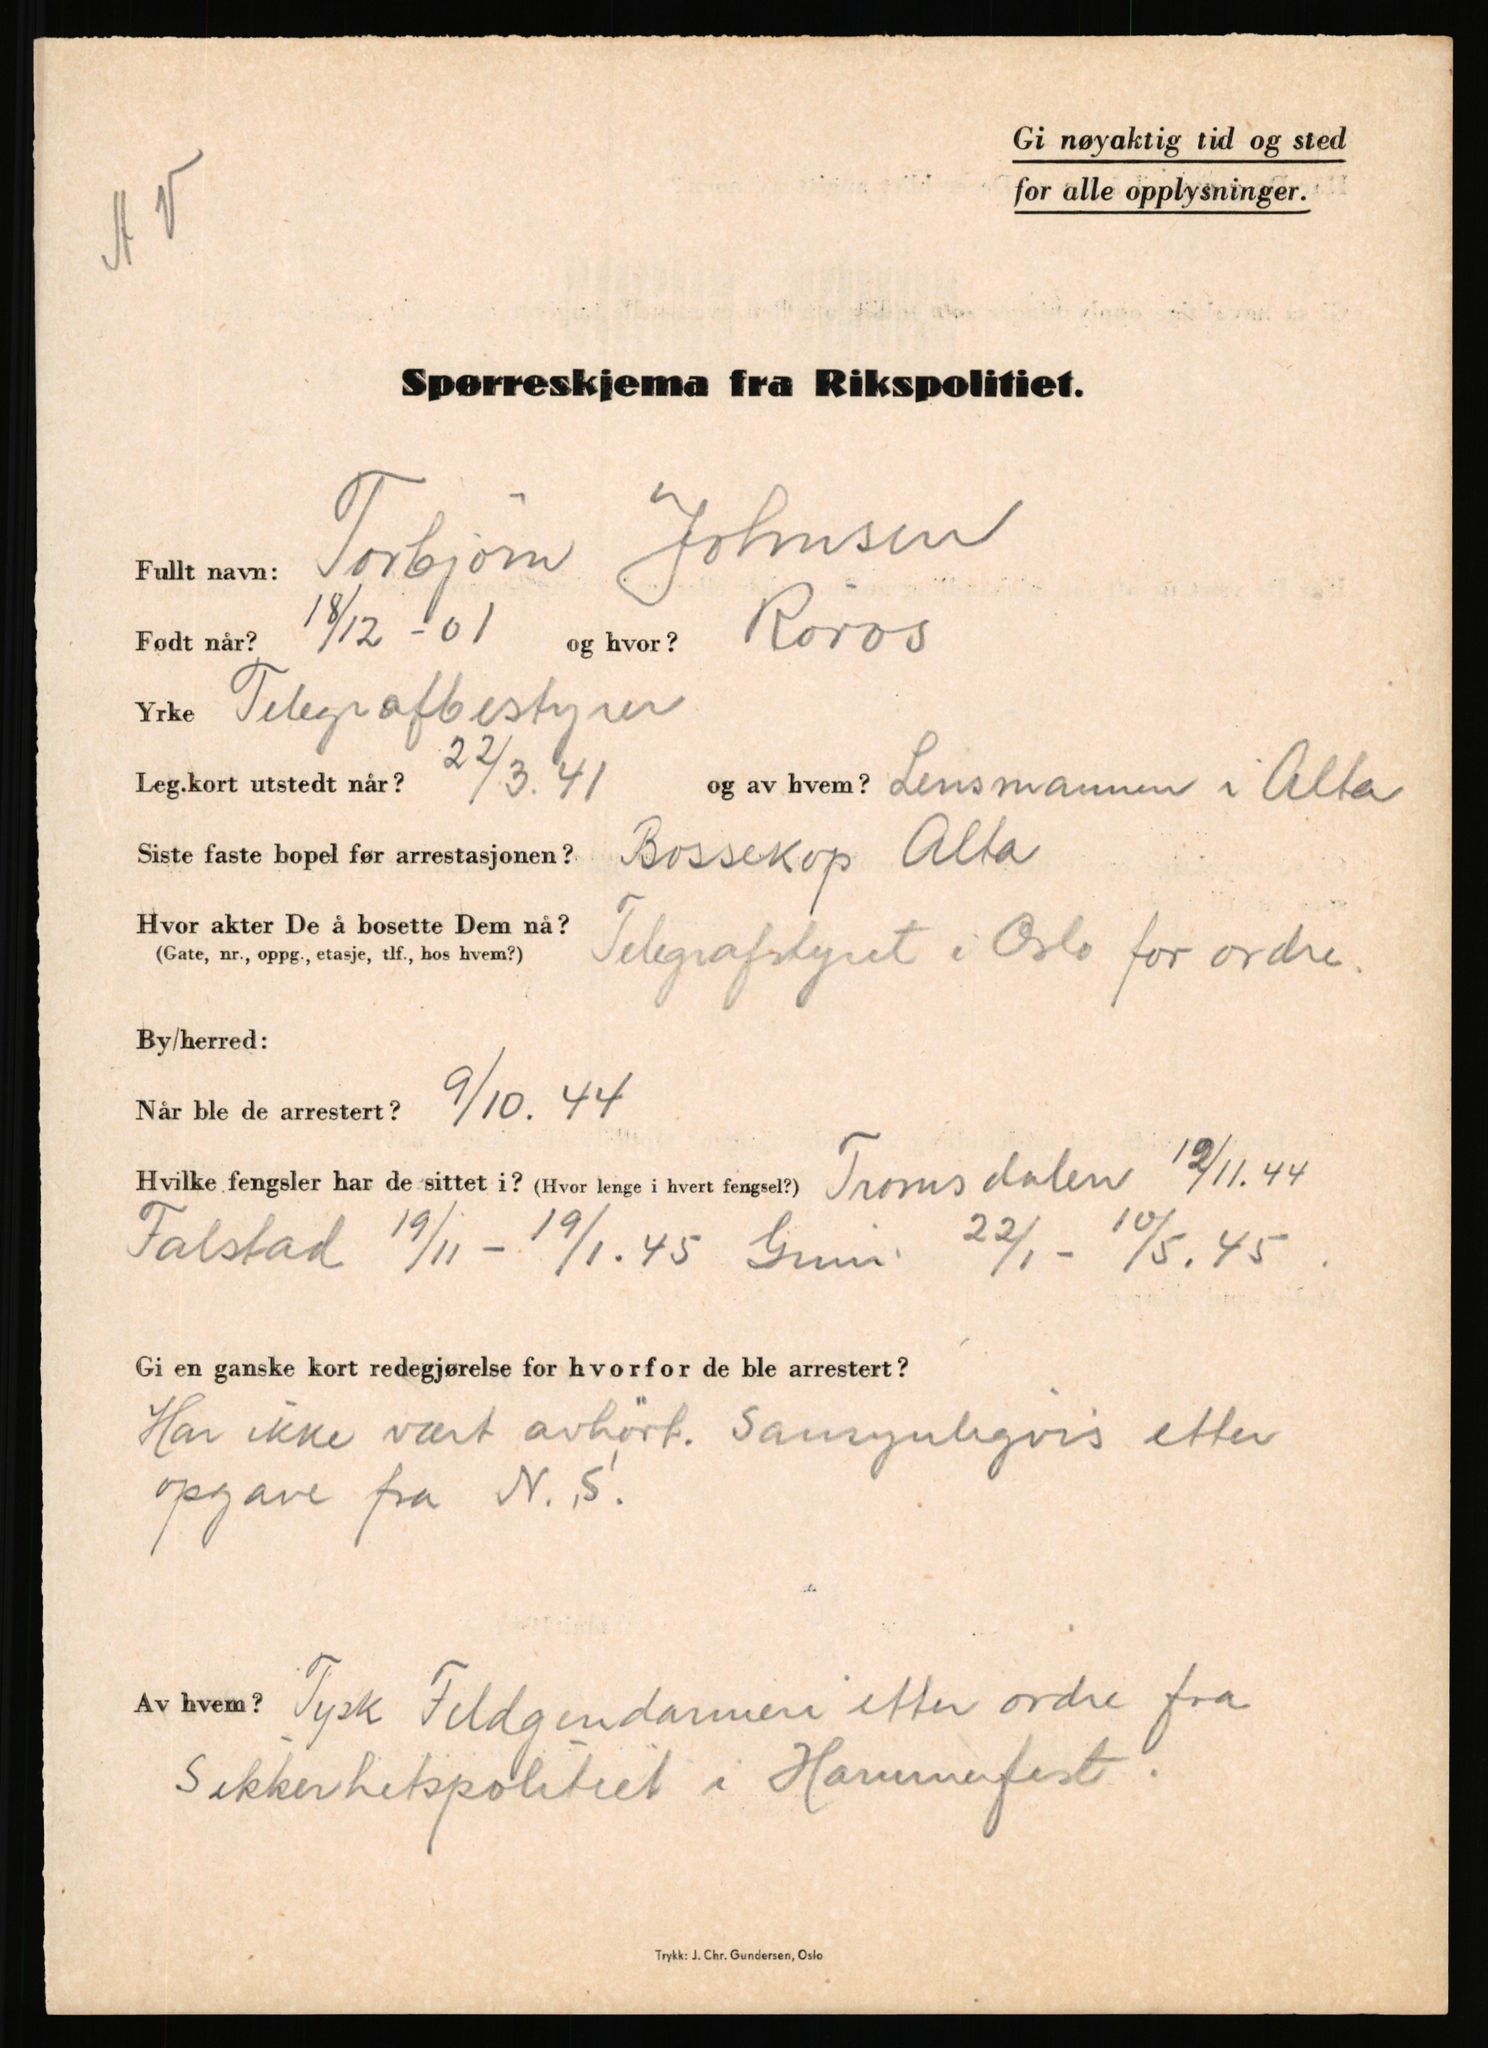 Gi nøyaktig tid og sted
for alle opplysninger.
A V
Spørreskjema fra Rikspolitiet.
Fullt navn: Torbjörn Johnsen
Født når? 18/12 - 01 og hvor? Röros
Yrke Telegrafbestyrer
Leg.kort utstedt når? 22/3. 41 og av hvem? Lensmannen i Alta
Siste faste bopel før arrestasjonen? Bossekop Alta
Hvor akter De å bosette Dem nå? Telegrafstyret i Oslo for ordre.
(Gate, nr., oppg., etasje, tlf., hos hvem?)
By/herred:
Når ble de arrestert? 9/10. 44
Hvilke fengsler har de sittet i? (Hvor lenge i hvert fengsel?) Tromsdalen /11. 44
Falstad 19/11 - 19/1. 45 Grini 22/1 - 10/5. 45.
Gi en ganske kort redegjørelse for hvorfor de ble arrestert?
Har ikke vært avhört. Sansynligvis etter
opgave fra N.S.
Av hvem? Tysk Feldgendarmeri etter ordre fra
Sikkerhetspolitiet i Hammerfest.
Trykk: J. Chr. Gundersen, Oslo